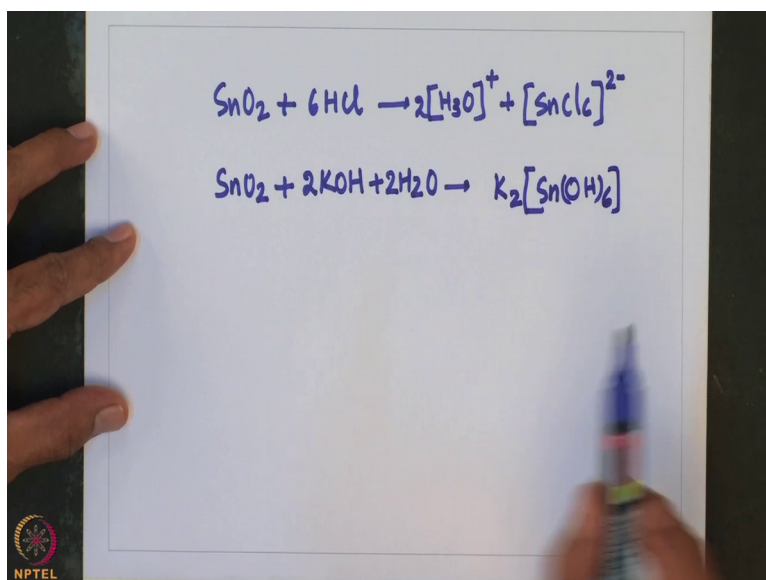 SnO₂ + 6HCl → 2[H₃O]⁺ + [SnCl₆]²⁻
SnO₂ + 2KOH + 2H₂O → K₂[Sn(OH)₆]
NPTEL